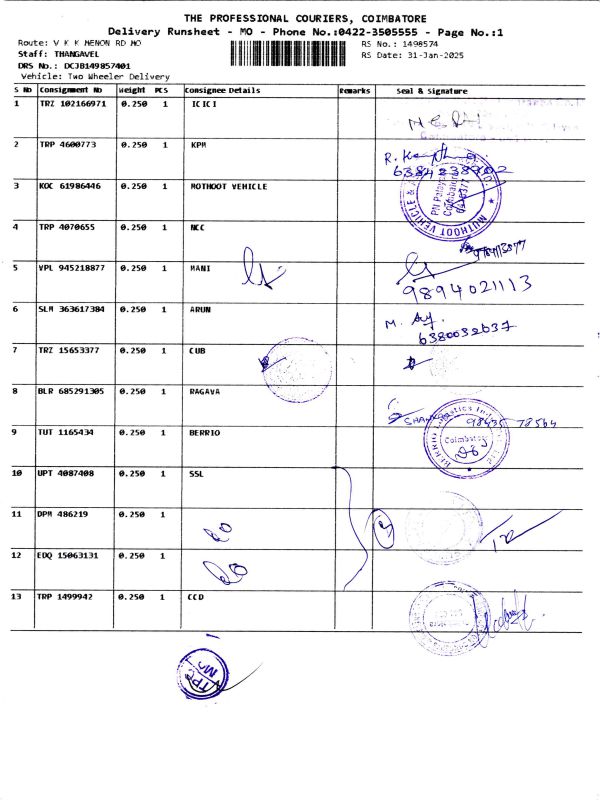 THE PROFESSIONAL COURIERS, COIMBATORE
Delivery Runsheet - MO - Phone No.:0422-3505555 - Page No.:1
Route: V K K MENON RD MO
RS No.: 1498574
Staff: THANGAVEL
RS Date: 31-Jan-2025
DRS No.: DCJB149857401
Vehicle: Two Wheeler Delivery
S No Consignment No Weight PCS Consignee Details Remarks Seal & Signature
1 TRZ 102166971 0.250 1 ICICI
2 TRP 4600773 0.250 1 KPM
3 KOC 61986446 0.250 1 MOTHOOT VEHICLE
MUTHOOT VEHICLE &
4 TRP 4070655 0.250 1 NCC
5 VPL 945218877 0.250 1 MANI
9894021113
6 SLM 363617384 0.250 1 ARUN
M.
6380032637
7 TRZ 15653377 0.250 1 CUB
8 BLR 685291305 0.250 1 RAGAVA
98435 78564
9 TUT 1165434 0.250 1 BERRIO
BERRIO Logistics
Coimbatore
10 UPT 4087408 0.250 1 SSL
11 DPM 486219 0.250 1
12 EDQ 15063131 0.250 1
13 TRP 1499942 0.250 1 CCD
TPC
MO